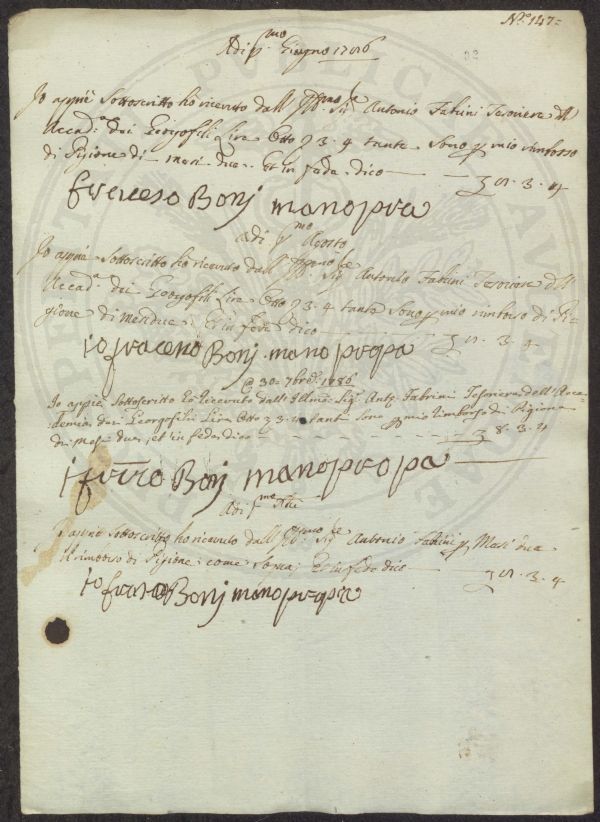 N.º 147=
Adi p.mo Giugno 1786
Io appiè Sottoscritto ho ricevuto dall' Sig.re Antonio Fabrini Tesoriere dell
Accad.a dei Georgofili Lire Otto 3. 4 tante Sono p mio rimborso
di Pigione di mesi due. Et in fede dico — 8. 3. 4
Bonj mano
adi p.mo Agosto
Io appiè Sottoscritto ho ricevuto dall' Sig.re Antonio Fabrini Tesoriere dell
Accad.a dei Georgofili Lire Otto 3. 4 tante Sono p mio rimborso di Pi-
gione di mesi due. Et in fede dico — 8. 3. 4
io Bonj mano propa
@ 30. 7bre 1786
Io appiè Sottoscritto ho ricevuto dall' Illmo Sig.e Ant.o Fabrini Tesoriere dell' Acca-
demia dei Georgofili Lire Otto 3. 4 tant Sono p mio rimborso di Pigione
di Mesi due, et in fede dico — 8. 3. 4
Bonj mano propa
Adi p.mo
Sottoscritto ho ricevuto dall' Sig.re Antonio Fabrini p Mesi due
il rimborso di Pigione come Sopra; Et in fede dico — 8. 3. 4
io Bonj mano propa